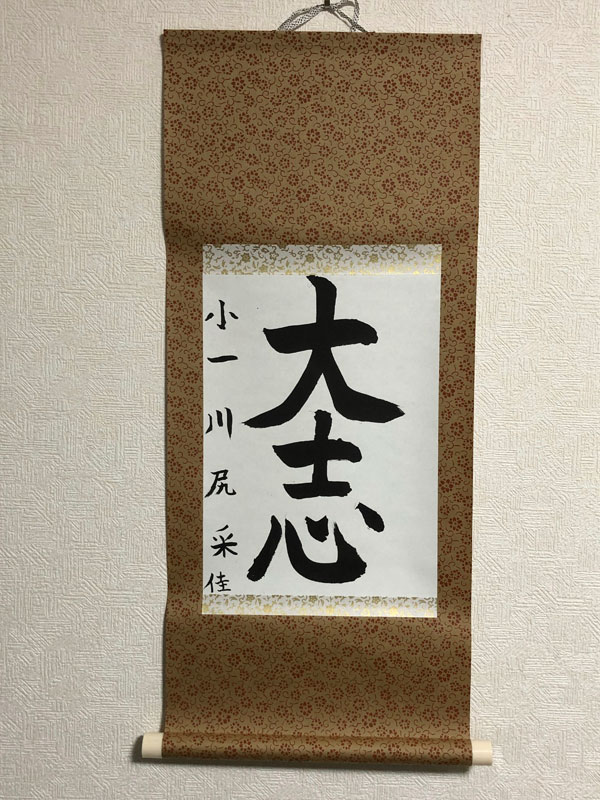 大志
小一 川尻采佳